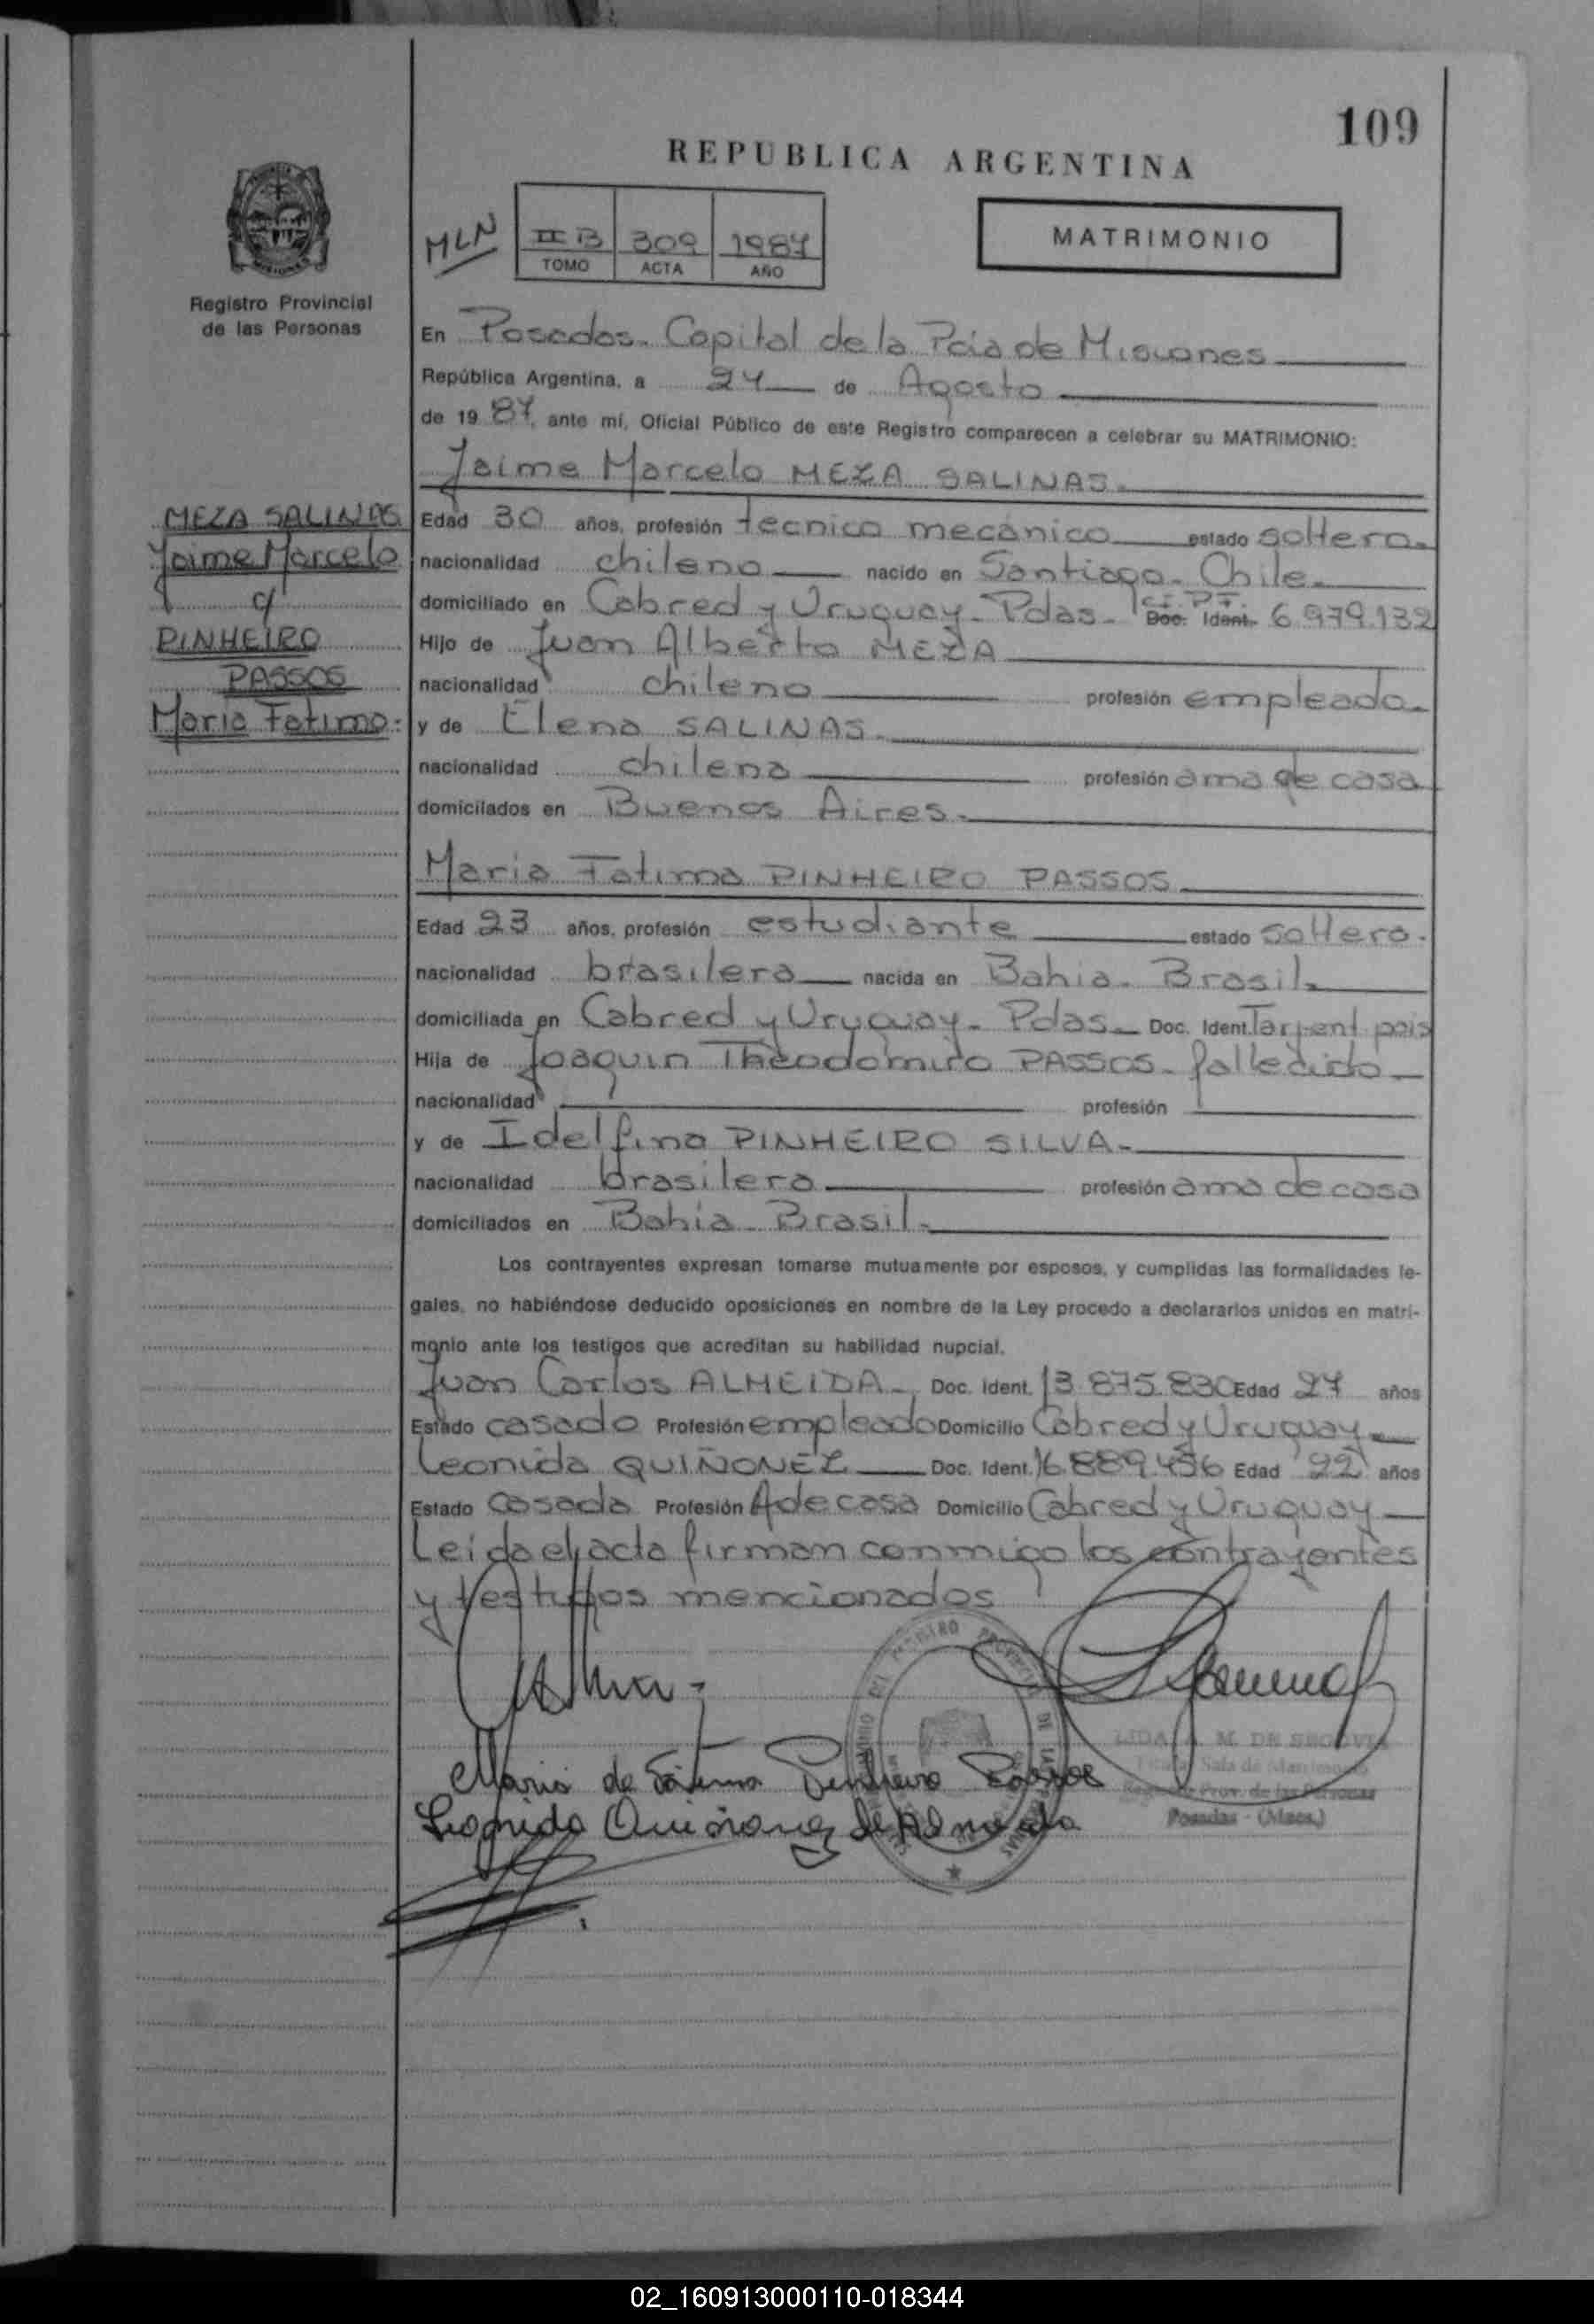 109
REPUBLICA ARGENTINA
MLN
II B 309 1987
TOMO ACTA AÑO
MATRIMONIO
Registro Provincial
de las Personas
En Posadas. Capital de la Pcia de Misiones
República Argentina, a 24 de Agosto
de 19 87, ante mí, Oficial Público de este Registro comparecen a celebrar su MATRIMONIO:
Jaime Marcelo MEZA SALINAS.
MEZA SALINAS
Jaime Marcelo
c/
PINHEIRO
PASSOS
Maria Fatima.
Edad 30 años, profesión tecnico mecánico estado soltero.
nacionalidad chileno nacido en Santiago. Chile.
domiciliado en Cabred y Uruguay. Pdas. C.I.P.F. Doc. Ident. 6.979.132
Hijo de Juan Alberto MEZA
nacionalidad chileno profesión empleado.
y de Elena SALINAS.
nacionalidad chilena profesión ama de casa
domicilados en Buenos Aires.
Maria Fatima PINHEIRO PASSOS
Edad 23 años, profesión estudiante estado soltera.
nacionalidad brasilera nacida en Bahia. Brasil.
domiciliada en Cabred y Uruguay. Pdas. Doc. Ident. Tarj ent pais
Hija de Joaquin Theodomiro PASSOS. fallecido
nacionalidad profesión
y de Idelfina PINHEIRO SILVA.
nacionalidad brasilera profesión ama de casa
domiciliados en Bahía. Brasil.
Los contrayentes expresan tomarse mutuamente por esposos, y cumplidas las formalidades le-
gales, no habiéndose deducido oposiciones en nombre de la Ley procedo a declararlos unidos en matri-
monio ante los testigos que acreditan su habilidad nupcial.
Juan Carlos ALMEIDA. Doc. Ident. 13.875.830 Edad 27 años
Estado casado Profesión empleado Domicilio Cabred y Uruguay
Leonida QUIÑONEZ Doc. Ident. 16.889.456 Edad 22 años
Estado casada Profesión A de casa Domicilio Cabred y Uruguay
Leida el acta firman conmigo los contrayentes
y testigos mencionados
LIDA A. M. DE SEGOVIA
Sala de Matrimonio
Registro Prov. de las Personas
Posadas - (Mnes.)
Maria de Fátima Pinheiro Passos
Leonida Quiñonez de Almeida
02_160913000110-018344